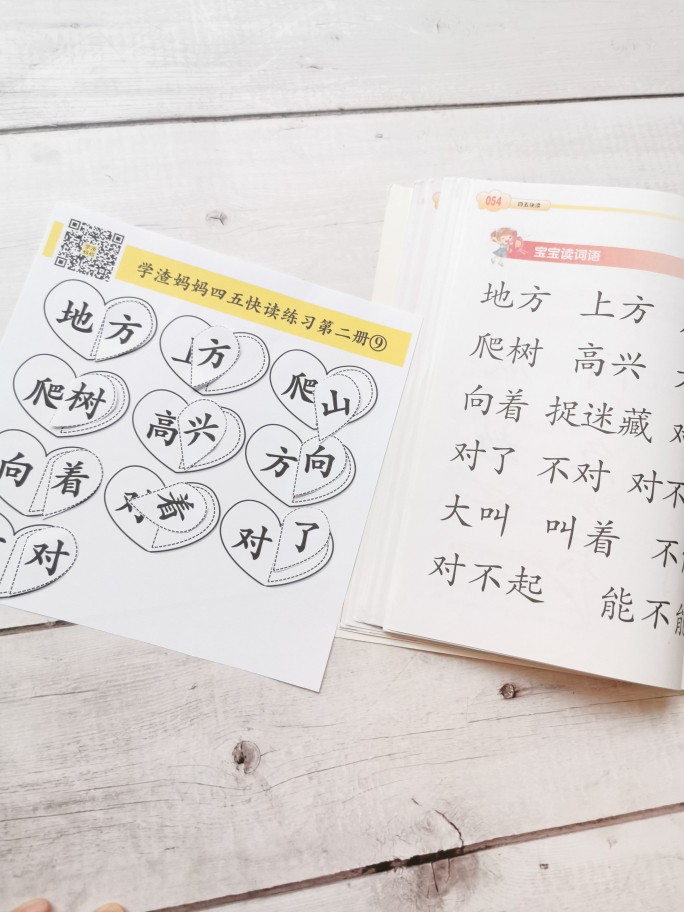 学渣妈妈四五快读练习第二册⑨
地方 上方 爬山
爬树 高兴 方向
向着 对着 对了
对
054 四五快读
宝宝读词语
地方 上方
爬树 高兴
向着 捉迷藏 对
对了 不对 对不
大叫 叫着 不
对不起 能不能